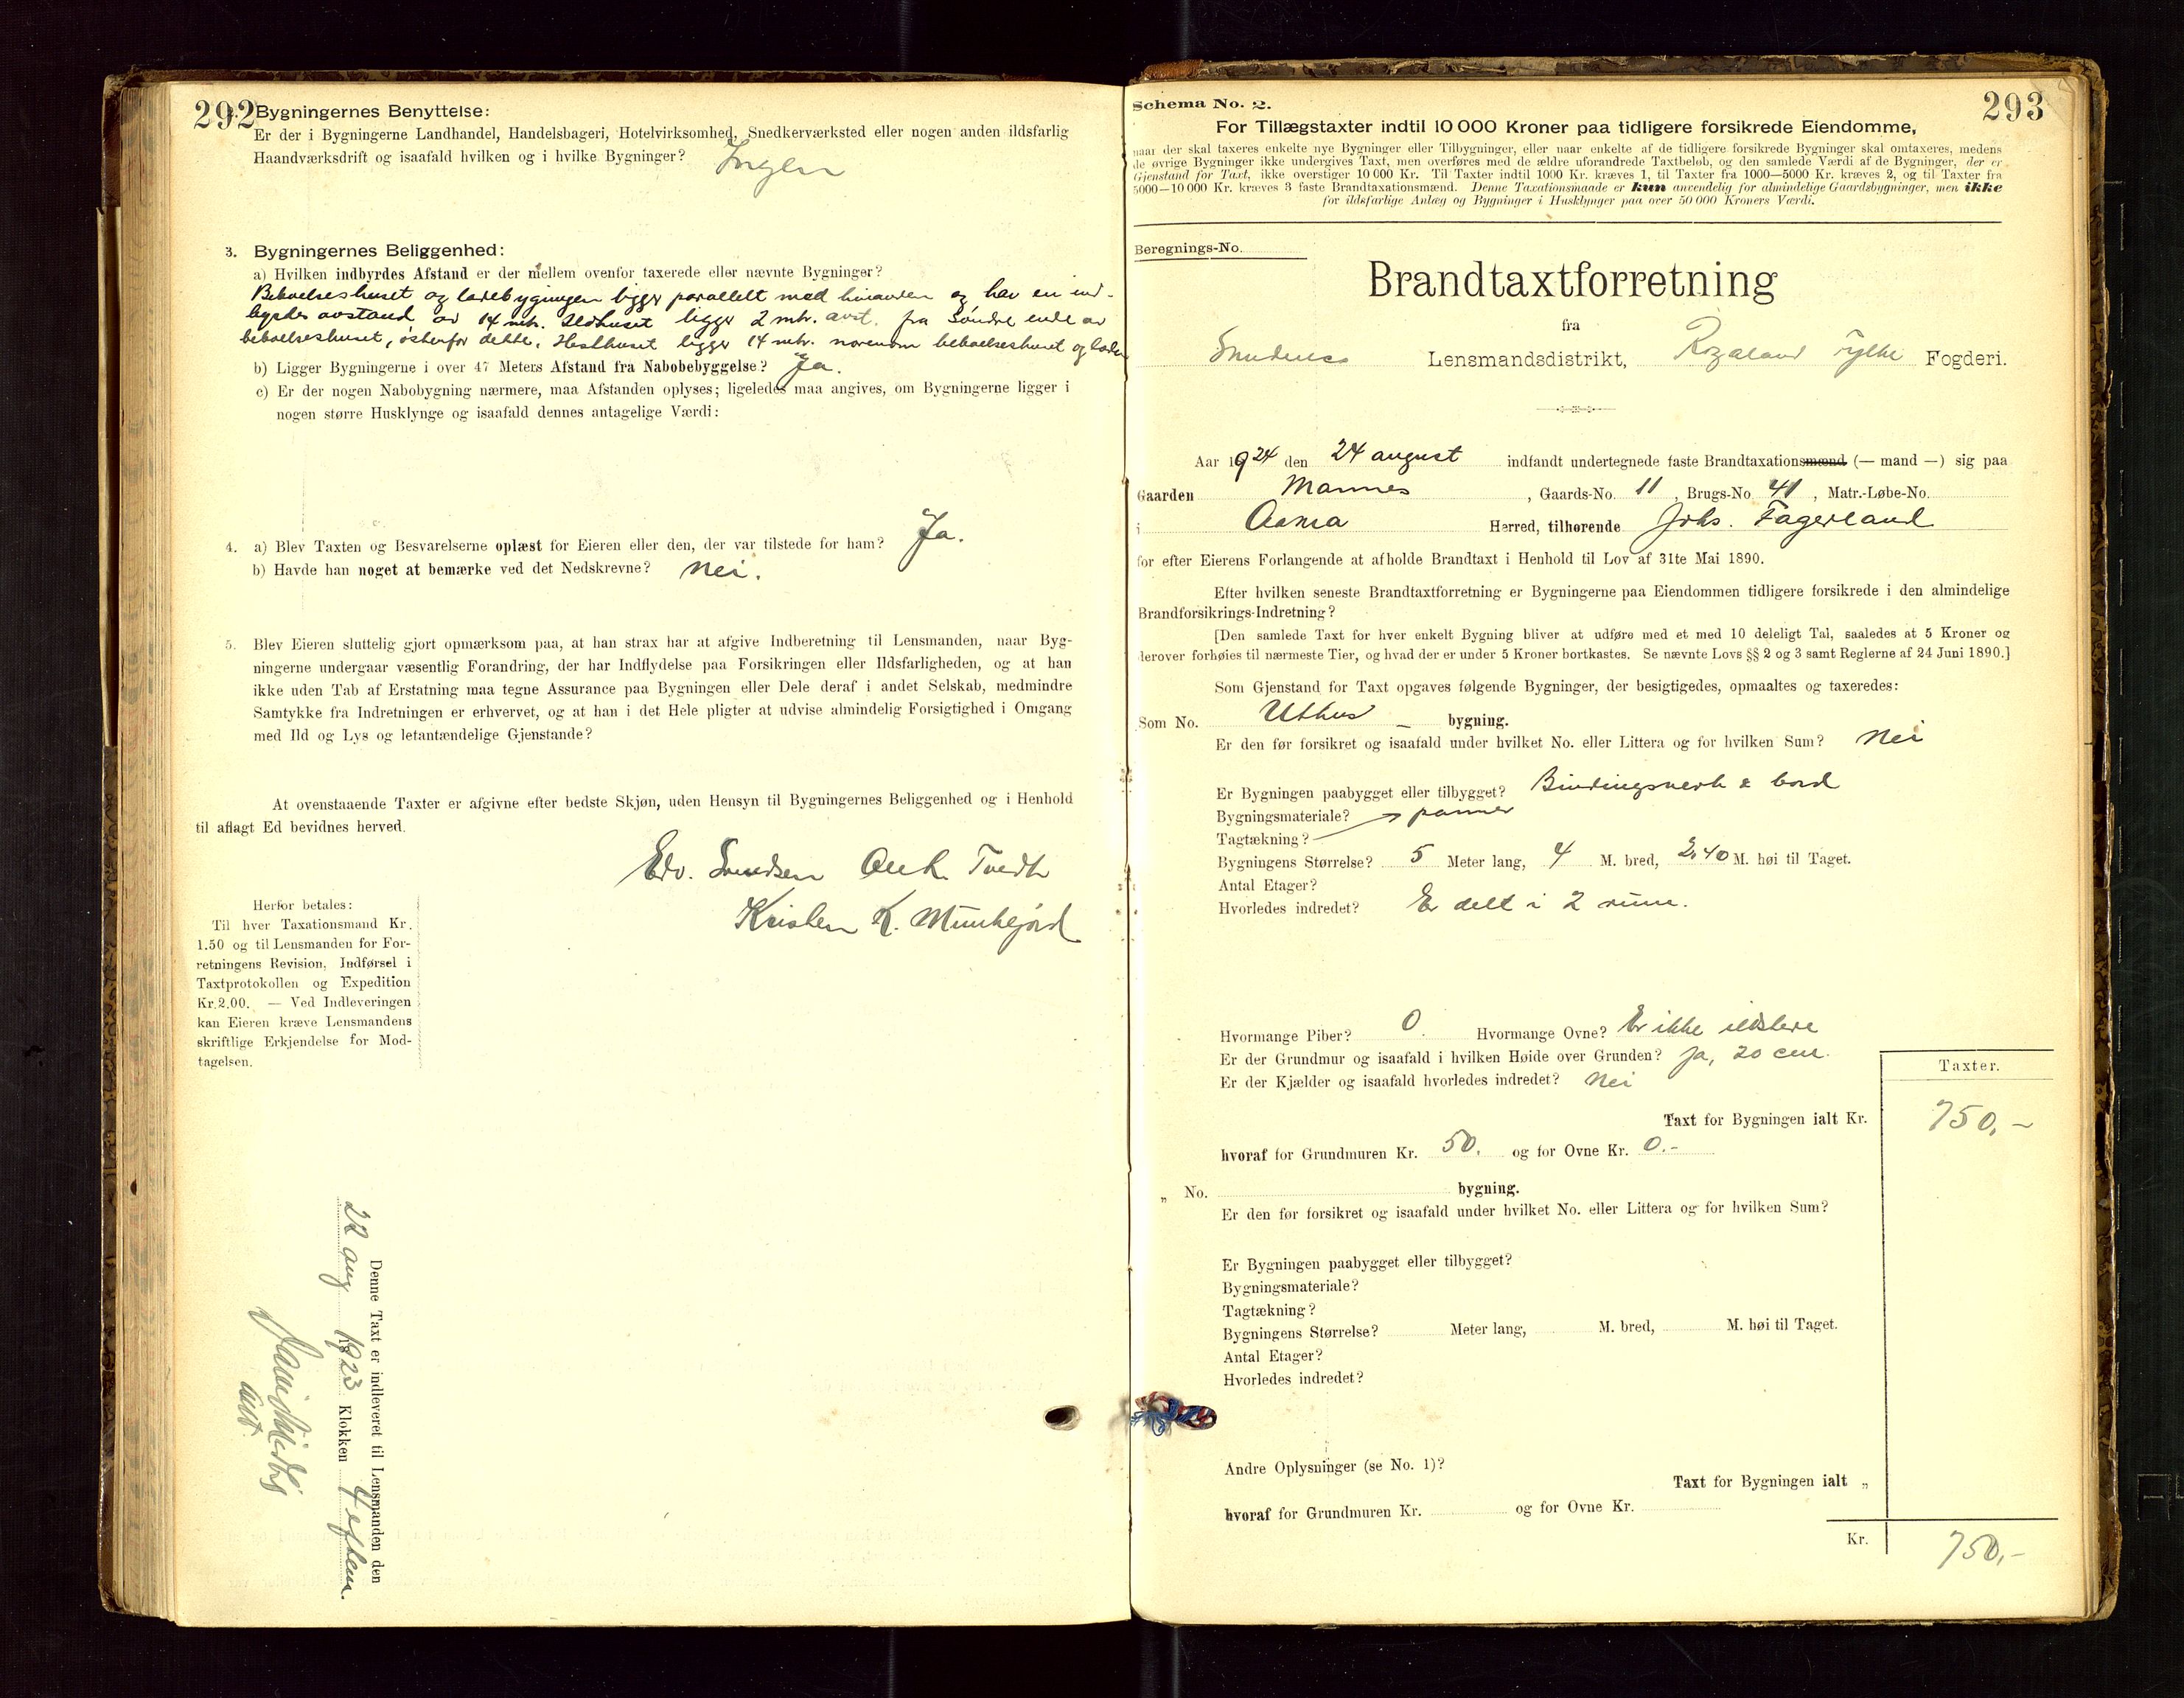 292
Bygningernes Benyttelse:
Er der i Bygningerne Landhandel, Handelsbageri, Hotelvirksomhed, Snedkerværksted eller nogen anden ildsfarlig
Haandværksdrift og isaafald hvilken og i hvilke Bygninger? Ingen
3. Bygningernes Beliggenhed:
a) Hvilken indbyrdes Afstand er der mellem ovenfor taxerede eller nævnte Bygninger?
Beboelseshuset og ladebygningen ligger parallelt med hinanden og har en ind-
byrdes avstand av 14 mtr. Ildhuset ligger 2 mtr. avst. fra søndre ende av
beboelseshuset, østenfor dette. Hesthuset ligger 14 mtr. norenom beboelseshuset og laden
b) Ligger Bygningerne i over 47 Meters Afstand fra Nabobebyggelse? Ja.
c) Er der nogen Nabobygning nærmere, maa Afstanden oplyses; ligeledes maa angives, om Bygningerne ligger i
nogen større Husklynge og isaafald dennes antagelige Værdi:
4. a) Blev Taxten og Besvarelserne oplæst for Eieren eller den, der var tilstede for ham? Ja.
b) Havde han noget at bemærke ved det Nedskrevne? Nei.
5. Blev Eieren sluttelig gjort opmærksom paa, at han strax har at afgive Indberetning til Lensmanden, naar Byg-
ningerne undergaar væsentlig Forandring, der har Indflydelse paa Forsikringen eller Ildsfarligheden, og at han
ikke uden Tab af Erstatning maa tegne Assurance paa Bygningen eller Dele deraf i andet Selskab, medmindre
Samtykke fra Indretningen er erhvervet, og at han i det Hele pligter at udvise almindelig Forsigtighed i Omgang
med Ild og Lys og letantændelige Gjenstande?
At ovenstaaende Taxter er afgivne efter bedste Skjøn, uden Hensyn til Bygningernes Beliggenhed og i Henhold
til aflagt Ed bevidnes herved.
Edv. Svendsen Ant. Tvedt
Kristen K. Munkejord
Herfor betales:
Til hver Taxationsmand Kr.
1.50 og til Lensmanden for For-
retningens Revision, Indførsel i
Taxtprotokollen og Expedition
Kr. 2.00. — Ved Indleveringen
kan Eieren kræve Lensmandens
skriftlige Erkjendelse for Mod-
tagelsen.
Denne Taxt er indleveret til Lensmanden den
22 aug 1923 Klokken 4 eftm.
293
Schema No. 2.
For Tillægstaxter indtil 10 000 Kroner paa tidligere forsikrede Eiendomme,
naar der skal taxeres enkelte nye Bygninger eller Tilbygninger, eller naar enkelte af de tidligere forsikrede Bygninger skal omtaxeres, medens
de øvrige Bygninger ikke undergives Taxt, men overføres med de ældre uforandrede Taxtbeløb, og den samlede Værdi af de Bygninger, der er
Gjenstand for Taxt, ikke overstiger 10 000 Kr. Til Taxter indtil 1000 Kr. kræves 1, til Taxter fra 1000—5000 Kr. kræves 2, og til Taxter fra
5000—10 000 Kr. kræves 3 faste Brandtaxationsmænd. Denne Taxationsmaade er kun anvendelig for almindelige Gaardsbygninger, men ikke
for ildsfarlige Anlæg og Bygninger i Husklynger paa over 50 000 Kroners Værdi.
Beregnings-No.
Brandtaxtforretning
fra
Skudenes Lensmandsdistrikt, Rogaland Fylke Fogderi.
Aar 1924 den 24 august indfandt undertegnede faste Brandtaxationsmænd (— mand —) sig paa
Gaarden Mannes, Gaards-No. 11, Brugs-No. 41, Matr.-Løbe-No.
i Aakra Herred, tilhørende Johs. Fagerland
for efter Eierens Forlangende at afholde Brandtaxt i Henhold til Lov af 31te Mai 1890.
Efter hvilken seneste Brandtaxtforretning er Bygningerne paa Eiendommen tidligere forsikrede i den almindelige
Brandforsikrings-Indretning?
[Den samlede Taxt for hver enkelt Bygning bliver at udføre med et med 10 deleligt Tal, saaledes at 5 Kroner og
derover forhøies til nærmeste Tier, og hvad der er under 5 Kroner bortkastes. Se nævnte Lovs §§ 2 og 3 samt Reglerne af 24 Juni 1890.]
Som Gjenstand for Taxt opgaves følgende Bygninger, der besigtigedes, opmaaltes og taxeredes:
Som No. Uthus — bygning.
Er den før forsikret og isaafald under hvilket No. eller Littera og for hvilken Sum? Nei
Er Bygningen paabygget eller tilbygget? Bindingsverk & bord
Bygningsmateriale? panner
Tagtækning?
Bygningens Størrelse? 5 Meter lang, 4 M. bred, 2.40 M. høi til Taget.
Antal Etager?
Hvorledes indredet? Er delt i 2 rum.
Hvormange Piber? 0. Hvormange Ovne? Er ikke ildstere
Er der Grundmur og isaafald i hvilken Høide over Grunden? Ja, 20 cm.
Er der Kjælder og isaafald hvorledes indredet? Nei
Taxter.
Taxt for Bygningen ialt Kr. 750,-
hvoraf for Grundmuren Kr. 50. og for Ovne Kr. 0.-
„ No. bygning.
Er den før forsikret og isaafald under hvilket No. eller Littera og for hvilken Sum?
Er Bygningen paabygget eller tilbygget?
Bygningsmateriale?
Tagtækning?
Bygningens Størrelse? Meter lang, M. bred, M. høi til Taget.
Antal Etager?
Hvorledes indredet?
Andre Oplysninger (se No. 1)?
Taxt for Bygningen ialt „
hvoraf for Grundmuren Kr. og for Ovne Kr.
Kr. 750,-